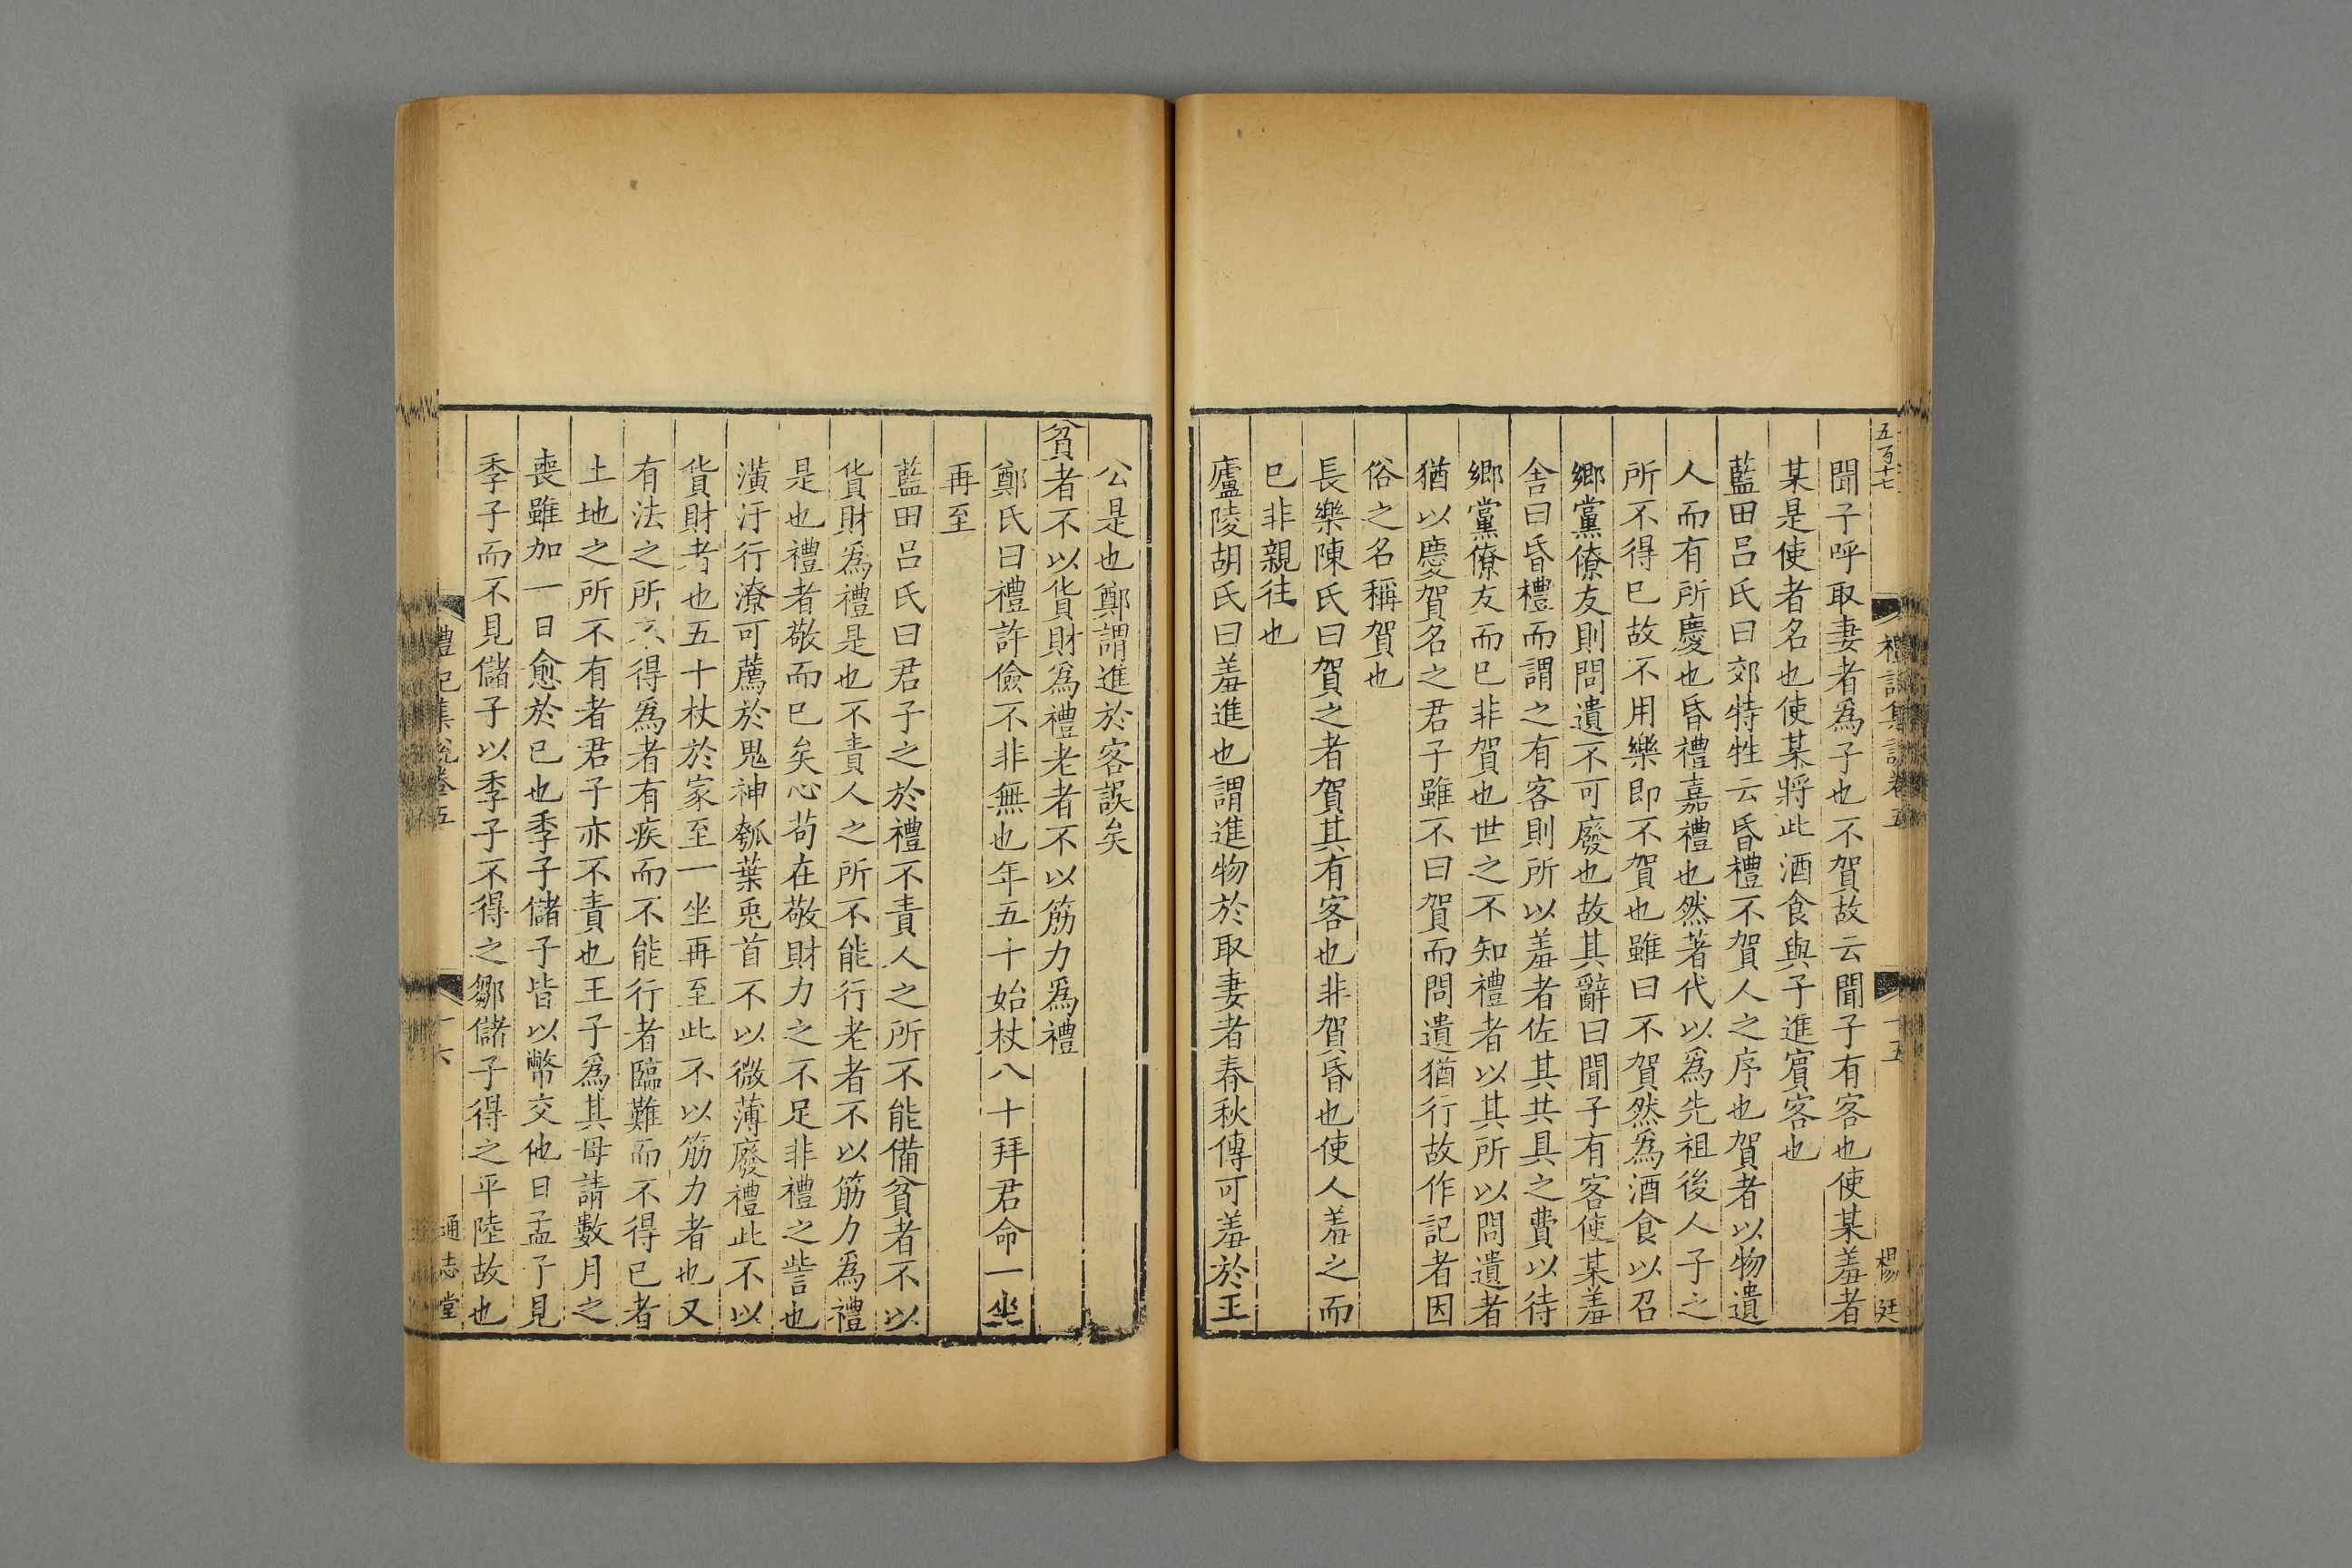 五百十七
禮記集說卷五
十五
楊廷
聞子呼取妻者爲子也不賀故云聞子有客也使某羞者
某是使者名也使某將此酒食與子進賔客也
藍田呂氏曰郊特牲云昏禮不賀人之序也賀者以物遺
人而有所慶也昏禮嘉禮也然著代以爲先祖後人子之
所不得巳故不用樂即不賀也雖曰不賀然爲酒食以召
鄉黨僚友則問遺不可廢也故其辭曰聞子有客使某羞
舍曰昏禮而謂之有客則所以羞者佐其共具之費以待
鄉黨僚友而巳非賀也世之不知禮者以其所以問遺者
猶以慶賀名之君子雖不曰賀而問遺猶行故作記者因
俗之名稱賀也
長樂陳氏曰賀之者賀其有客也非賀昏也使人羞之而
巳非親往也
廬陵胡氏曰羞進也謂進物於取妻者春秋傳可羞於王
公是也鄭謂進於客誤矣
貧者不以貨財爲禮老者不以筋力爲禮
鄭氏曰禮許儉不非無也年五十始杖八十拜君命一坐
再至
藍田呂氏曰君子之於禮不責人之所不能備貧者不以
貨財爲禮是也不責人之所不能行老者不以筋力爲禮
是也禮者敬而巳矣心苟在敬財力之不足非禮之訾也
潢汙行潦可薦於鬼神瓠葉兎首不以微薄廢禮此不以
貨財者也五十杖於家至一坐再至此不以筋力者也又
有法之所不得爲者有疾而不能行者臨難而不得已者
土地之所不有者君子亦不責也王子爲其母請數月之
喪雖加一日愈於巳也季子儲子皆以幣交他日孟子見
季子而不見儲子以季子不得之鄒儲子得之平陸故也
禮記集說卷五
十六
通志堂